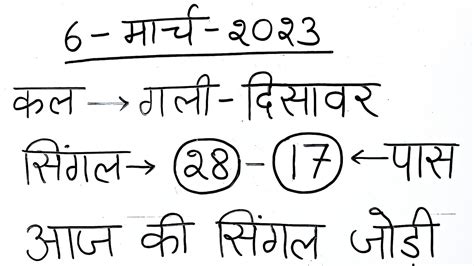 6-मार्च-२०२३
कल → गली-दिसावर
सिंगल→ 28-17 ←पास
आज की सिंगल जोड़ी